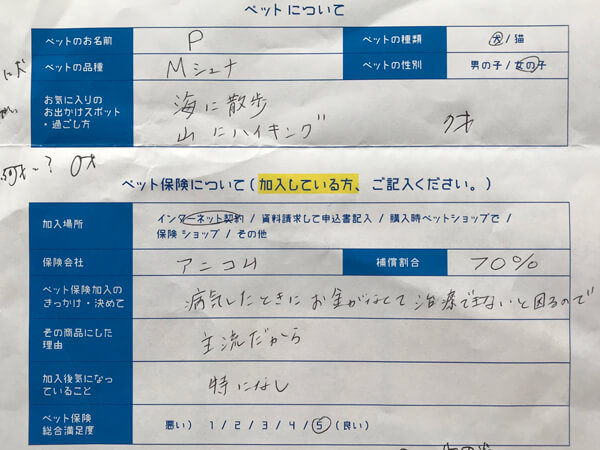 ペットについて
ペットのお名前 P ペットの種類 犬 / 猫
ペットの品種 Mシュナ ペットの性別 男の子 / 女の子
お気に入りの
お出かけスポット
・過ごし方
海に散歩
山にハイキング
0才
0才
ペット保険について ( 加入している方、ご記入ください。)
加入場所 インターネット契約 / 資料請求して申込書記入 / 購入時ペットショップで /
保険ショップ / その他
保険会社 アニコム 補償割合 70%
ペット保険加入の
きっかけ・決めて
病気したときにお金がなくて治療できないと困るので
その商品にした
理由
主流だから
加入後気になっ
ていること
特になし
ペット保険
総合満足度
悪い) 1 / 2 / 3 / 4 / 5 (良い)